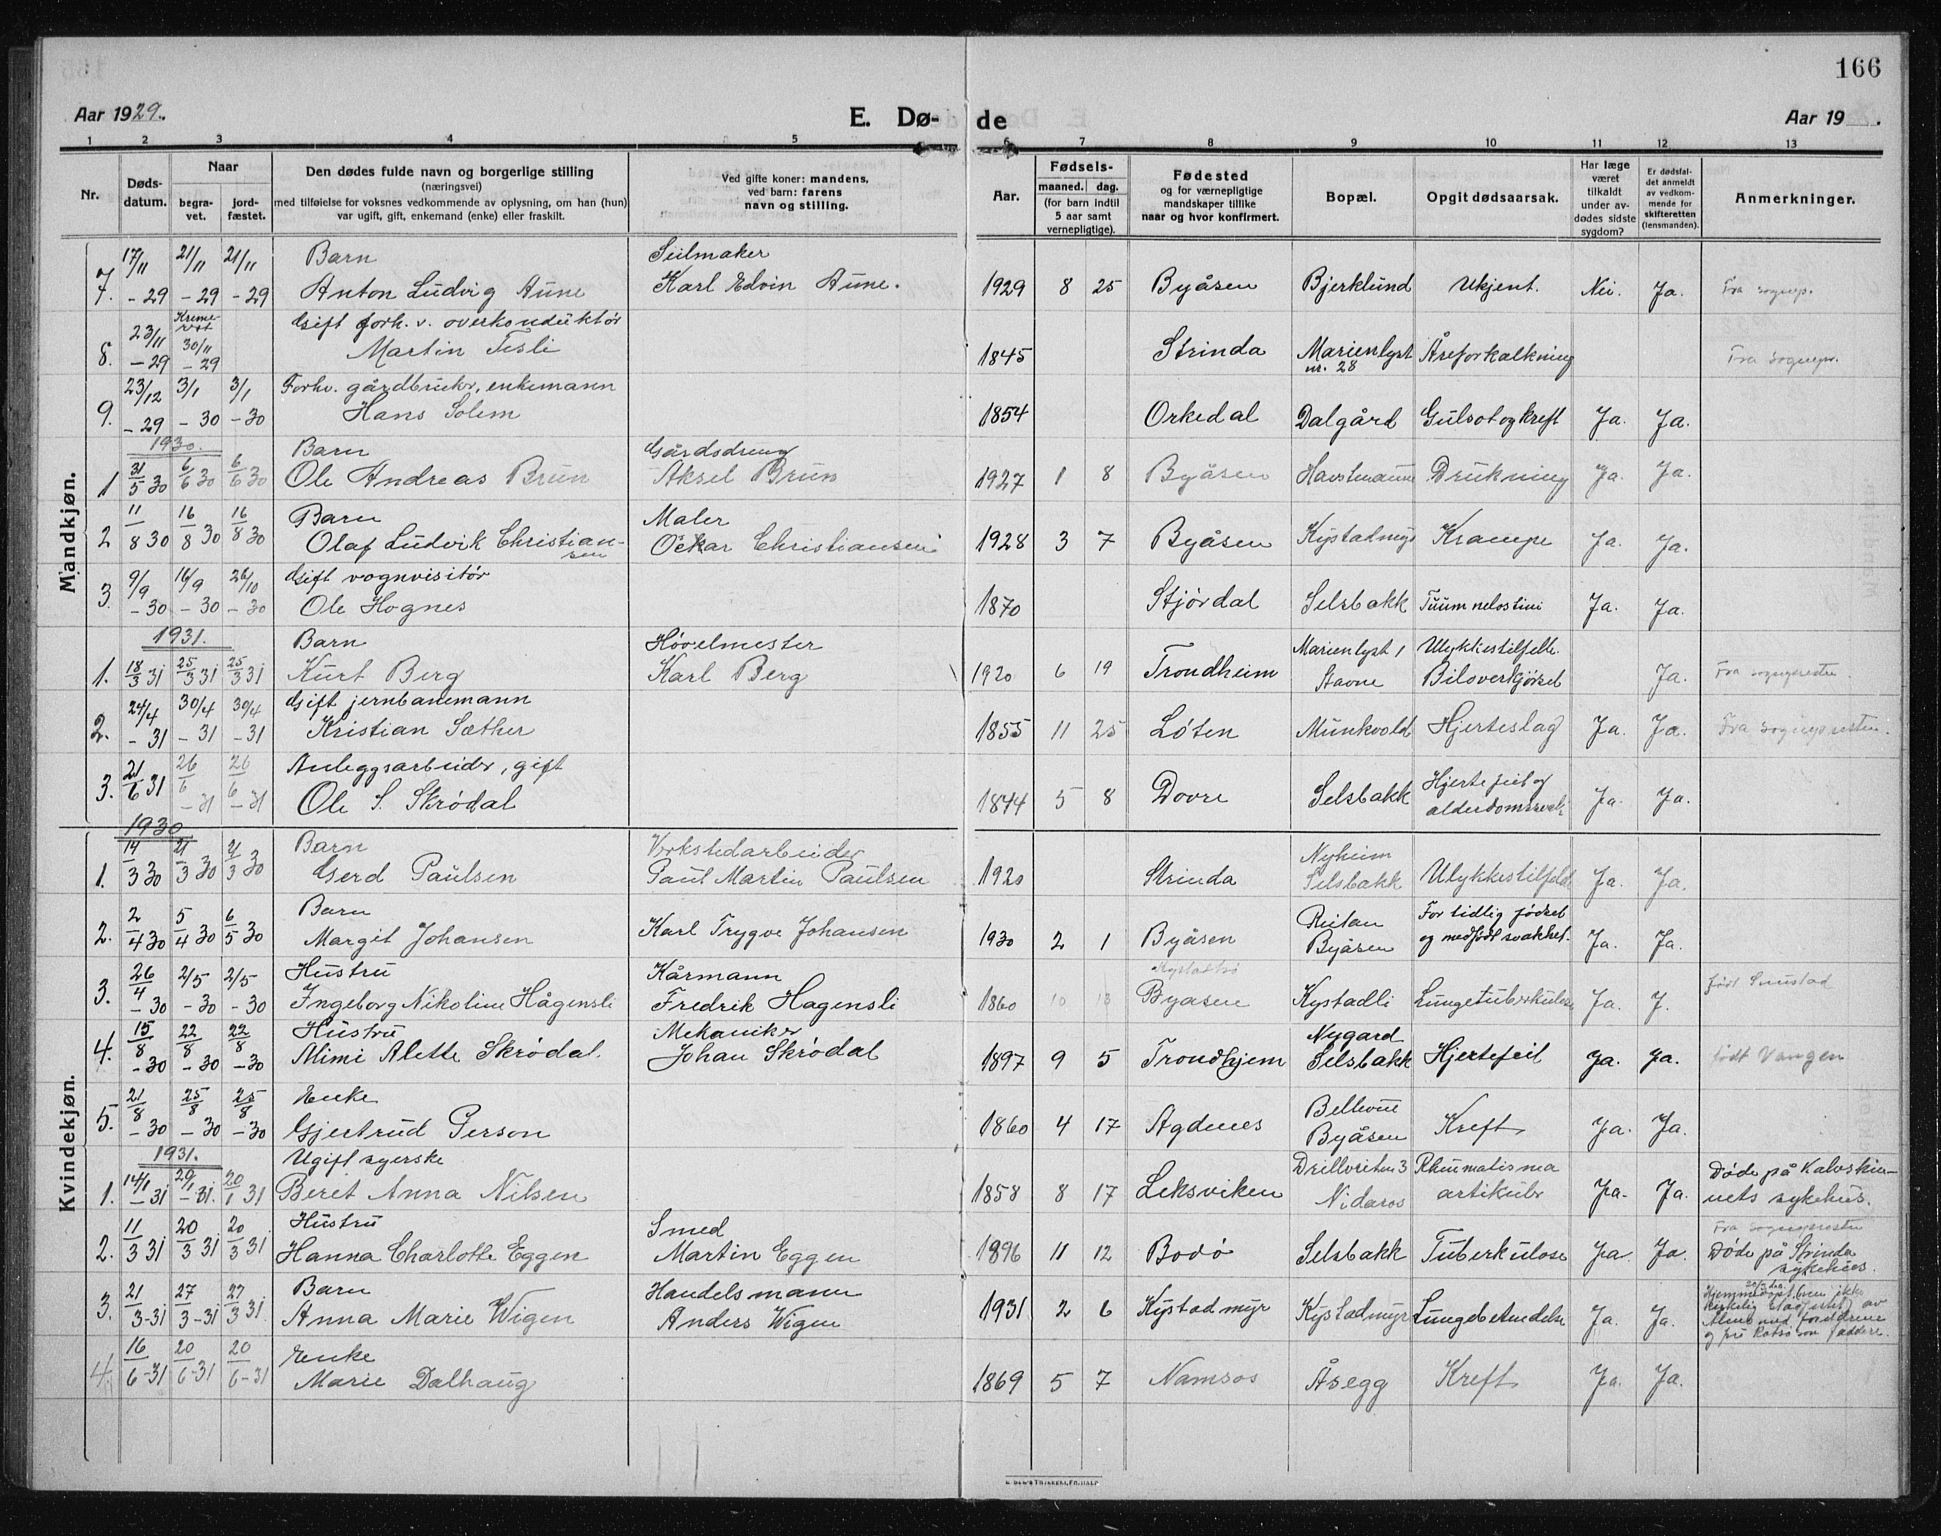 166
Aar 1929.
E. Dø-
de
Aar 19 .
1 2 3 4 5 6 7 8 9 10 11 12 13
Nr.
Døds-
datum.
Naar
begra-
vet.
jord-
fæstet.
Den dødes fulde navn og borgerlige stilling
(næringsvei)
med tilføielse for voksnes vedkommende av oplysning, om han (hun)
var ugift, gift, enkemand (enke) eller fraskilt.
Ved gifte koner: mandens,
ved barn: farens
navn og stilling.
Aar.
Fødsels-
maaned. dag.
(for barn indtil
5 aar samt
vernepligtige).
Fødested
og for værnepligtige
mandskaper tillike
naar og hvor konfirmert.
Bopæl.
Opgit dødsaarsak.
Har læge
været
tilkaldt
under av-
dødes sidste
sygdom?
Er dødsfal-
det anmeldt
av vedkom-
mende for
skifteretten
(lensmanden).
Anmerkninger.
Mandkjøn.
17/11 21/11 21/11 Barn Seilmaker
7. -29 -29 -29 Anton Ludvig Aune Karl Edvin Aune. 1929 8 25 Byåsen Bjerklund Ukjent. Nei. Ja. Fra sognepr.
23/11 30/11 Gift forh. v. overkonduktør
8. -29 -29 Martin Tesli 1845 Strinda Marienlyst nr. 28 Åreforkalkning Fra sognepr.
23/12 3/1 3/1 Forhv. gårdbruker, enkemann
9. -29 -30 -30 Hans Solem 1854 Orkedal Dalgård Gulsot og kreft Ja. Ja.
1930.
Barn Gårdsdreng
1 31/5 30 6/6 30 6/6 30 Ole Andreas Brun Aksel Brun 1927 1 8 Byåsen Drukning Ja. Ja.
Barn Maler
2 11/8 30 16/8 30 16/8 30 Olaf Ludvik Christian-
sen Oskar Christiansen 1928 3 7 Byåsen Kystadmyr Krampe Ja. Ja.
9/9 16/9 26/10 Gift vognvisitør
3. -30 -30 -30 Ole Hognes 1870 Stjørdal Selsbakk Ja. Ja.
1931.
Barn Høvelmester Marienlyst 1 Ulykkestilfelle
1. 18/3 31 25/3 31 25/3 31 Kurt Berg Karl Berg 1920 6 19 Trondheim Stavne Biloverkjørsel Ja. Fra sognepresten.
24/4 30/4 30/4 Gift jernbanemann
2. -31 -31 -31 Kristian Sæther 1855 11 25 Løten Munkvold Hjerteslag Ja. Ja. Fra sognepresten.
Anleggsarbeider, gift Hjertefeil og
3. 21/6 31 26/6 -31 26/6 -31 Ole S. Skrødal 1844 5 8 Dovre Selsbakk alderdomssvak. Ja. Ja.
Kvindekjøn.
1930
Barn Verkstedarbeider Nyheim
1. 14/3 30 21/3 30 21/3 30 Gerd Paulsen Paul Martin Paulsen 1920 Strinda Selsbakk Ulykkestilfelde Ja. Ja.
Barn Rutan For tidlig fødsel
2. 2/4 30 5/4 30 6/5 30 Margit Johansen Karl Trygve Johansen 1930 2 1 Byåsen Byåsen og medfødt svakhet. Ja. Ja.
Hustru Kårmann
3. 26/4 -30 2/5 -30 2/5 -30 Ingeborg Nikoline Hågensli Fredrik Hagensli 1860 10 13 Byåsen Kystadli Lungetuberkulose Ja. J. født
Hustru Mekaniker Nygard
4. 15/8 -30 22/8 -30 22/8 -30 Mimi Alette Skrødal. Johan Skrødal 1897 9 5 Trondhjem Selsbakk Hjertefeil Ja. Ja. født Vangen
Enke Bellevue
5. 21/8 -30 25/8 -30 25/8 -30 Gjertrud Person 1860 4 17 Agdenes Byåsen Kreft Ja. Ja.
1931.
Ugift syerske Rheumatisma Døde på Kalvskin-
1. 14/1 -31 20/1 -31. 20/1 31 Beret Anna Nilsen 1858 8 17 Leksviken Nidaros Ja. Ja. nets sykehus.
Hustru Smed Fra sognepresten
2. 11/3 31 20/3 31 20/3 31 Hanna Charlotte Eggen Martin Eggen 1896 11 12 Bodø Selsbakk Tuberkulose Ja. Ja. Døde på Strinda
sykehus.
Barn Handelsmann
3. 21/3-31 27/3-31 27/3 31 Anna Marie Wigen Anders Wigen 1931 2 6 Kystadmyr Kystadmyr Lungebetendelse Ja. Ja. Hjemmedøpt, men ikke
Enke
4. 16/6-31 20/6-31 20/6-31 Marie Dalhaug 1869 5 7 Namsos Åsegg Kreft Ja. Ja.